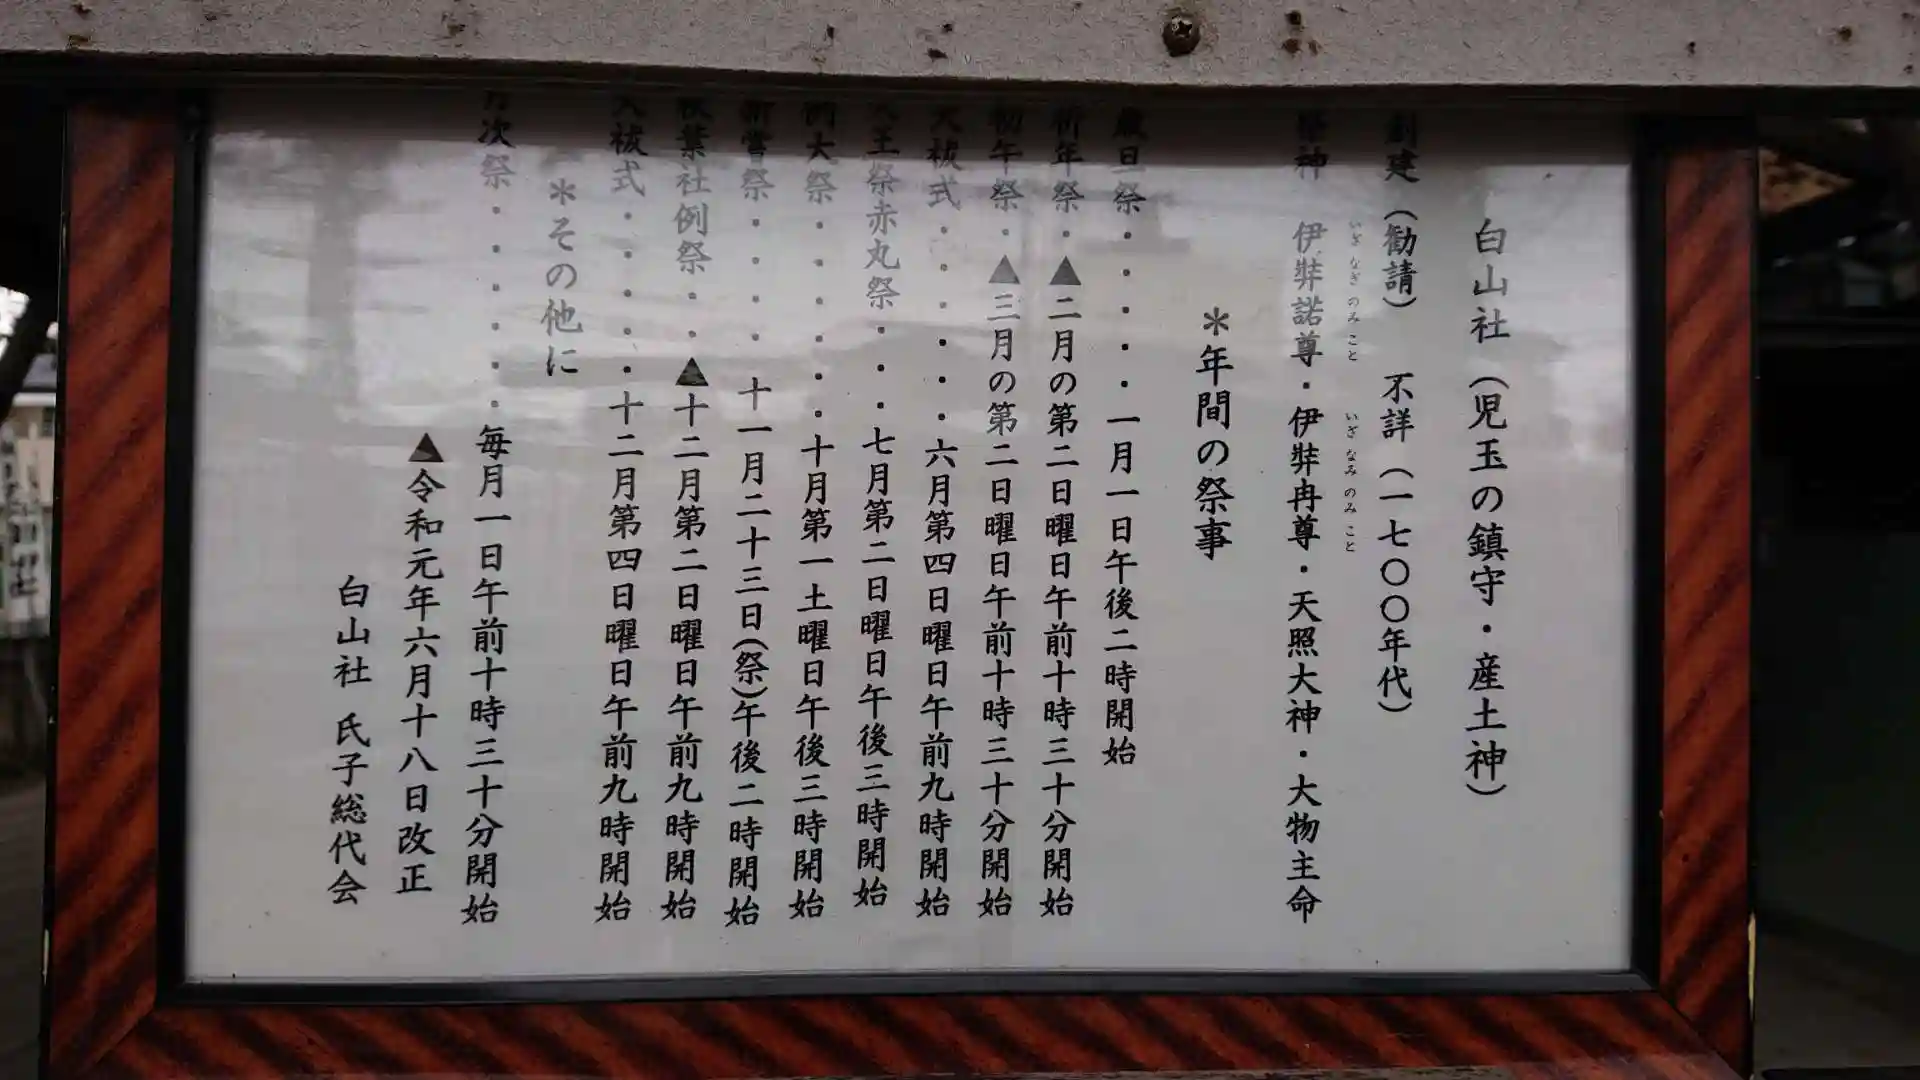 白山社（児玉の鎮守・産土神）
創建（勧請）　不詳（一七〇〇年代）
いざ なぎ のみ こと　いざ なみ のみ こと
祭神　伊弉諾尊・伊弉冉尊・天照大神・大物主命
＊年間の祭事
歳旦祭・・・・・一月一日午後二時開始
祈年祭・▲二月の第二日曜日午前十時三十分開始
初午祭・▲三月の第二日曜日午前十時三十分開始
大祓式・・・・・・六月第四日曜日午前九時開始
天王祭赤丸祭・・・七月第二日曜日午後三時開始
例大祭・・・・・・十月第一土曜日午後三時開始
新嘗祭・・・・十一月二十三日(祭)午後二時開始
秋葉社例祭・・▲十二月第二日曜日午前九時開始
大祓式・・・・・十二月第四日曜日午前九時開始
＊その他に
月次祭・・・・・・毎月一日午前十時三十分開始
▲令和元年六月十八日改正
白山社 氏子総代会